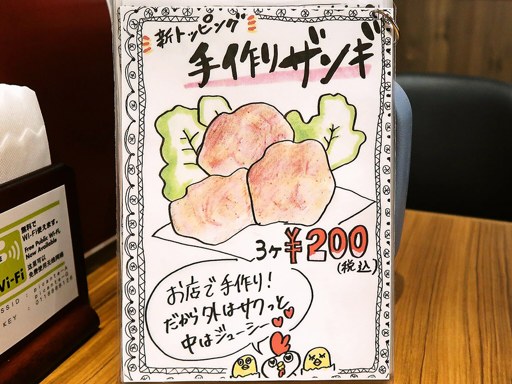 新トッピング
手作りザンギ
3ヶ¥200
(税込)
お店で手作り!
だから外はサクっと
中はジューシー
無料で
Wi-Fi使えます。
Free Public Wi-Fi,
Now Available
Wi-Fi
SSID
KEY